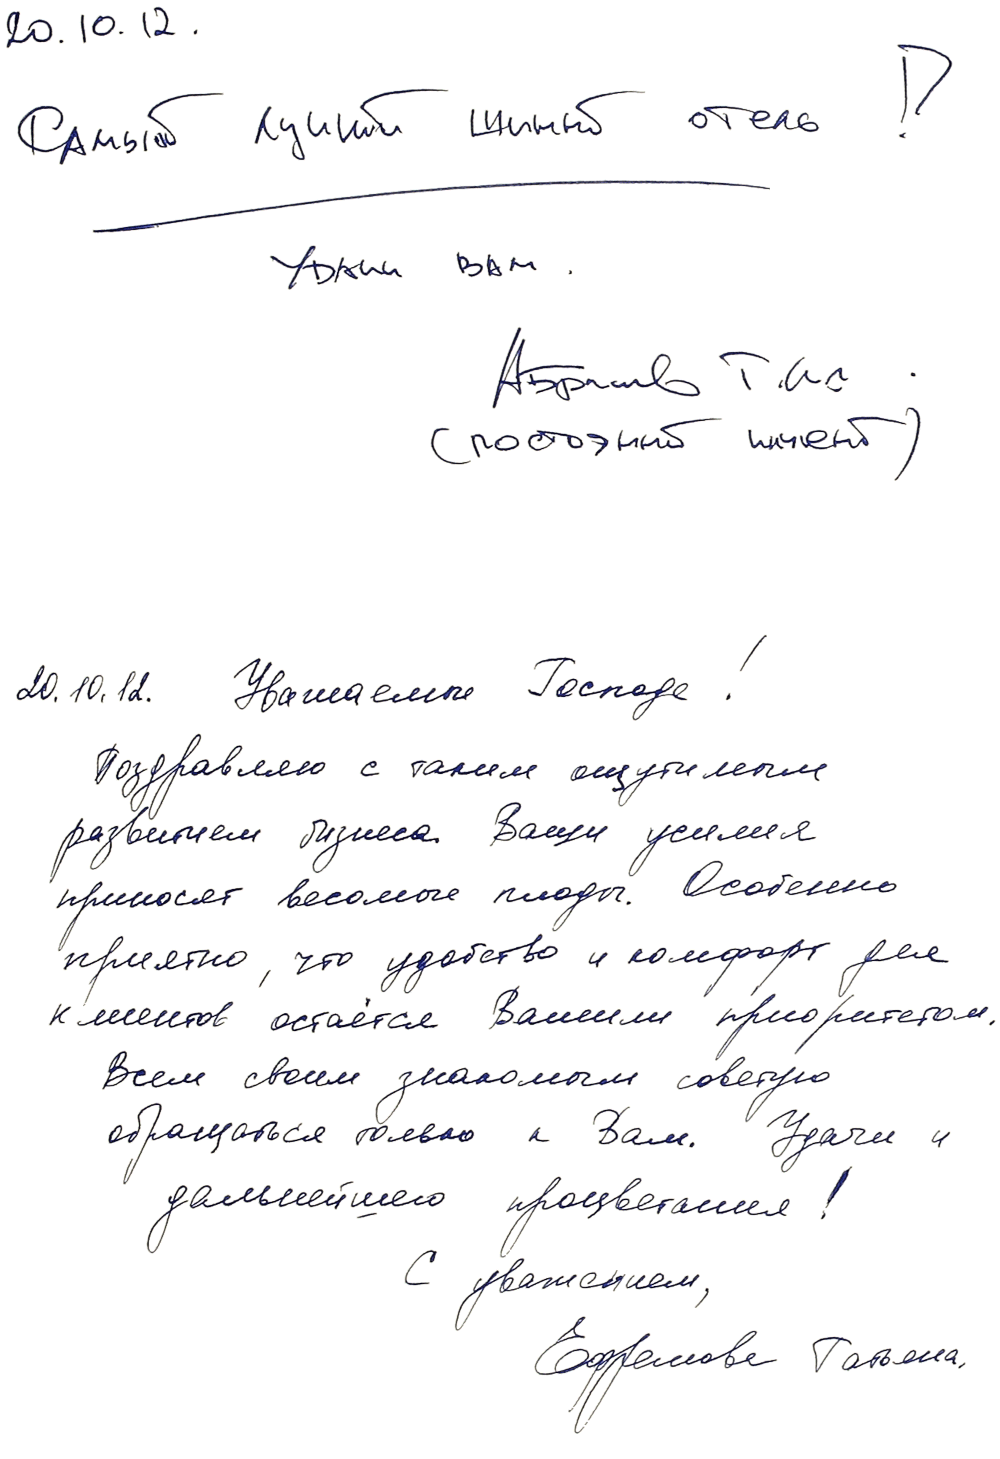 20.10.12.
Самый лучший шинный отель !
Удачи вам.
Т.
(постоянный клиент)
20.10.12. Уважаемые Господа!
Поздравляю с таким ощутимым
развитием бизнеса. Ваши усилия
приносят весомые плоды. Особенно
приятно, что удобство и комфорт для
клиентов остаётся Вашим приоритетом.
Всем своим знакомым советую
обращаться только к Вам. Удачи и
дальнейшего процветания!
С уважением,
Ефремова Татьяна.